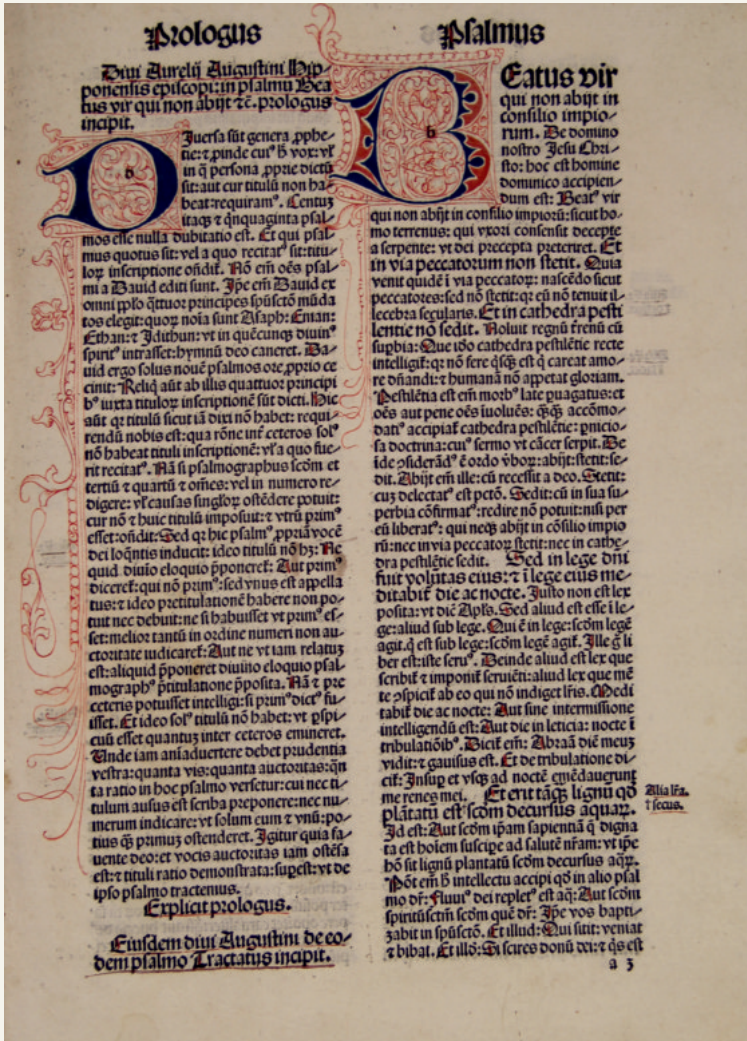 Prologus
Diui Aurelij Augustini Hip-
ponensis episcopi: in psalmū Bea
tus vir qui non abijt ⁊c̄. prologus
incipit.
d
Iuersa sūt genera ꝓphe-
tie: ⁊ ꝓinde cuiꝰ h̄ vox: vl̓
in q̄ persona ꝓprie dictū
sit: aut cur titulū non ha-
beat: requiramꝰ. Centuʒ
itaqʒ ⁊ q̄nquaginta psal-
mos esse nulla dubitatio est. Et qui psal-
mus quotus sit: vel a quo recitatꝰ sit: titu-
loꝝ inscriptione oñdit̄. Nō em̄ oēs psal-
mi a Dauid editi sunt. Ipe em̄ Dauid ex
omni pplo q̄ttuor principes spūsctō mūda
tos elegit: quoꝝ noīa sunt Asaph: Eman:
Ethan: ⁊ Idithun: vt in quēcunqʒ diuinꝰ
spiritꝰ intrasset: hymnū deo caneret. Da-
uid ergo solus nouē psalmos ore ꝓprio ce
cinit: Reliq̄ aūt ab illis quattuor principi
bꝰ iuxta tituloꝝ inscriptionē sūt dicti. Hic
aūt qꝛ titulū sicut iā dixi nō habet: requi-
rendū nobis est: qua rōne int̄ ceteros solꝰ
nō habeat tituli inscriptionē: vl̓ a quo fue-
rit recitatꝰ. Nā si psalmographus scōm et
tertiū ⁊ quartū ⁊ om̄es: vel in numero re-
digere: vl̓ causas singloꝝ ostēdere potuit:
cur nō ⁊ huic titulū imposuit: ⁊ vtrū primꝰ
esset: oñdit: Sed qꝛ hic psalmꝰ ꝓpriā vocē
dei loq̄ntis inducit: ideo titulū nō hʒ: Ne
quid diuino eloquio p̄poneret̄: Aut primꝰ
diceret̄: qui nō primꝰ: sed vnus est appella
tus: ⁊ ideo pretitulationē habere non po-
tuit nec debuit: ne si habuisset vt primꝰ es-
set: melior tantū in ordine numeri non au-
ctoritate iudicaret̄: Aut ne vt iam relatuʒ
est: aliquid p̄poneret diuino eloquio psal-
mographꝰ p̄titulatione p̄posita. Nā ⁊ pre
ceteris potuisset intelligi: si primꝰ dictꝰ fu-
isset. Et ideo solꝰ titulū nō habet: vt ꝓspi-
cuū esset quantuʒ inter ceteros emineret.
Unde iam aniaduertere debet prudentia
vestra: quanta vis: quanta auctoritas: q̄n
ta ratio in hoc psalmo versetur: cui nec ti-
tulum ausus est scriba preponere: nec nu-
merum indicare: vt solum eum ⁊ vnū: po-
tius q̄ʒ primuʒ ostenderet. Igitur quia fa-
uente deo: et vocis auctoritas iam ostēsa
est: ⁊ tituli ratio demonstrata: suꝑest: vt de
ipso psalmo tractemus.
Explicit prologus.
Eiusdem diui Augustini de eo-
dem psalmo Tractatus incipit.
Psalmus
b
Eatus vir
qui non abijt in
consilio impio-
rum. De domino
nostro Jesu Chri-
sto: hoc est homine
dominico accipien-
dum est: Beatꝰ vir
qui non abijt in consilio impiorū: sicut ho-
mo terrenus: qui vxori consensit decepte
a serpente: vt dei precepta preteriret. Et
in via peccatorum non stetit. Quia
venit quidē ī via peccatoꝝ: nascēdo sicut
peccatores: sed nō stetit: qꝛ eū nō tenuit il-
lecebra secularis. Et in cathedra pesti
lentie nō sedit. Noluit regnū t̄renū cū
suꝑbia: Que iō cathedra pestilētie recte
intelligit̄: qꝛ nō fere q̄sqʒ est q̄ careat amo-
re dn̄andi: ⁊ humanā nō appetat gloriam.
Pestilētia est em̄ morbꝰ late ꝑuagatus: et
oēs aut pene oēs īuoluēs: q̄ʒq̄ʒ accōmo-
datiꝰ accipiat̄ cathedra pestilētie: ꝑnicio-
sa doctrina: cuiꝰ sermo vt cācer serpit. De
īde ꝯsiderādꝰ ē ordo ṽboꝝ: abijt: stetit: se-
dit. Abijt em̄ ille: cū recessit a deo. Stetit:
cuʒ delectatꝰ est pctō. Sedit: cū in sua su-
perbia cōfirmatꝰ: redire nō potuit: nisi per
eū liberatꝰ: qui neqʒ abijt in cōsilio impio
rū: nec in via peccatoꝝ stetit: nec in cathe-
dra pestilētie sedit. Sed in lege dn̄i
fuit volūtas eius: ⁊ ī lege eius me-
ditabit̄ die ac nocte. Justo non est lex
posita: vt dic̄ Apl̓s. Sed aliud est esse ī le-
ge: aliud sub lege. Qui ē in lege: scōm legē
agit. q̄ est sub lege: scōm legē agit̄. Ille g̊ li
ber est: iste seruꝰ. Deinde aliud est lex que
scribit̄ ⁊ imponit̄ seruiēti: aliud lex que mē
te ꝯspicit̄ ab eo qui nō indiget lr̄is. Medi
tabit̄ die ac nocte: Aut sine intermissione
intelligendū est: Aut die in leticia: nocte ī
tribulatiōibꝰ. Dicit̄ em̄: Abraā diē meuʒ
vidit: ⁊ gauisus est. Et de tribulatione di-
cit̄: Insuꝑ et vsqʒ ad noctē emēdauerunt
me renes mei. Et erit tāq̄ʒ lignū qd̄
plātatū est scōm decursus aquaꝝ.
Id est: Aut scōm ip̄am sapientiā q̄ digna
ta est hoīem suscipe ad salutē nr̄am: vt ip̄e
hō sit lignū plantatū scōm decursus aq̄ꝝ.
Pōt em̄ h̄ intellectu accipi qd̄ in alio psal
mo dr̄: Fluuiꝰ dei repletꝰ est aq̄: Aut scōm
spiritūsctm̄ scōm quē dr̄: Ipe vos bapti-
ʒabit in spūsctō. Et illud: Qui sitit: veniat
⁊ bibat. Et illd̄: Si scires donū dei: ⁊ q̄s est
a 3
Alia lr̄a.
ſ secus.